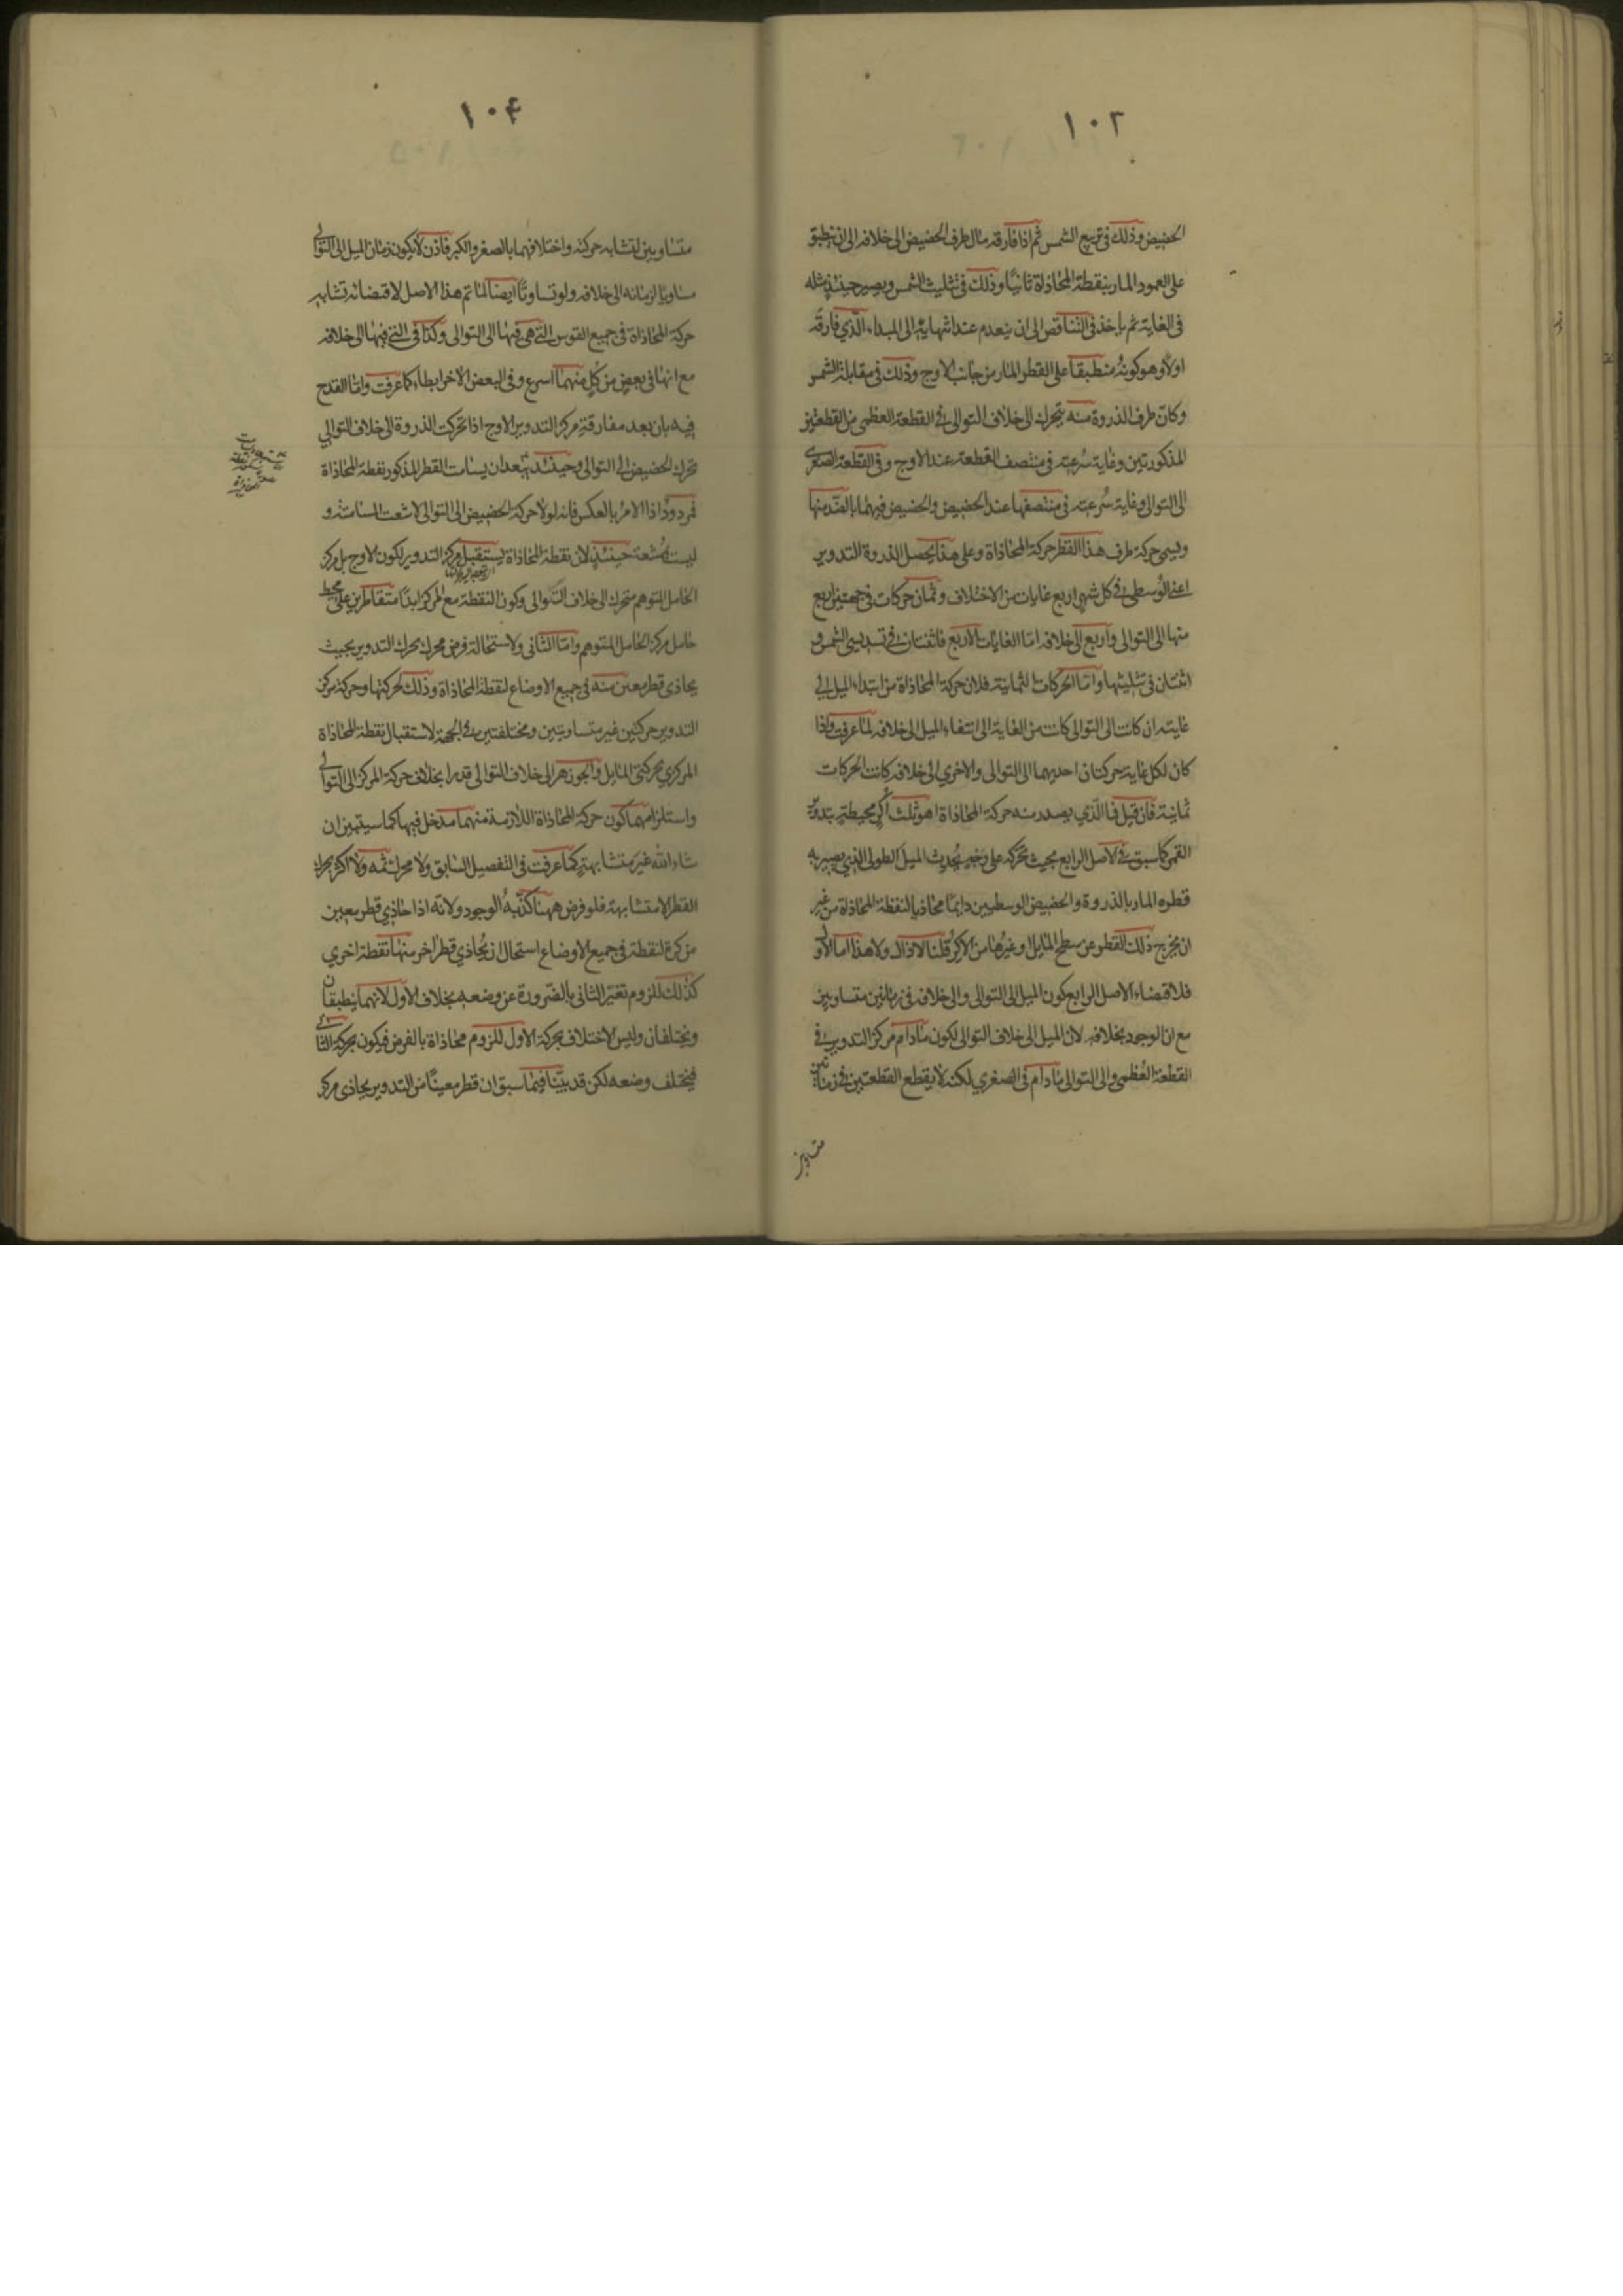 ١٠٣
الحضيض وذلك فى تربيع الشمس ثم اذا فارقه مال طرف الحضيض الى خلافه الى ان ينطبق
على العمود المار بنقطة المحاذاة ثانيًا وذلك فى تثليث الشمس ويصير حينئذٍ مثله
فى الغاية ثم ياخذ فى التناقص الى ان ينعدم عند انتهايه الى المبداء الّذي فارقه
اولًا وهو كونه منطبقا على القطر المار من جانب الاوج وذلك فى مقابلة الشمس
وكان طرف الذروة منه يتحرك الى خلاف التوالى فى القطعة العظمى من القطعتين
المذكورتين وغاية سُرعته فى منتصف القطعة عند الاوج وفى القطعة الصغرى
الى التوالى وغاية سُرعته فى منتصفها عند الحضيض والحضيض فيهما بالضدّ منها
ويسمى حركة طرف هذا القطر حركة المحاذاة وعلى هذا يحصل الذروة التدوير
اعنى الوُسطى فى كل شهرٍ اربع غايات من الاختلاف وثمان حركات فى جهتين اربع
منها الى التوالى واربع الى خلافه امّا الغايات الاربع فاثنتان فى تسديسى الشمس و
اثنتان فى تثليثيها وامّا الحركات الثمانية فلان حركة المحاذاة من ابتداء الميل الى
غايته ان كانت الى التوالى كانت من الغاية الى انتفاء الميل الى خلافه لما عرفت واذا
كان لكل غاية حركتان احديهما الى التوالى والاخري الى خلافه كانت الحركات
ثمانية فان قيل فما الّذي يصدر منه حركة المحاذاة اهو ثلث اُكرٍ محيطةٍ بتدوير
القمر كما سبق فى الاصل الرابع بحيث تحركه على وجهٍ يُحدِث الميلَ الطولى الذي يصير به
قطره المار بالذروة والحضيض الوسطيين دايمًا محاذيا لنقطة المحاذاة من غير
ان يخرج ذلك القطر عن سطح المايل او غيرُها من الاُكرِ قلنا لا ذاك ولا هذا اما الاول
فلاقتضاء الاصل الرابع كون الميل الى التوالى والى خلافه فى زمانين متساويين
مع ان الوجود بخلافه لان الميل الى خلاف التوالى يكون مادام مركز التدوير فى
القطعة العُظمى والى التوالى مادام فى الصغري لكنه لا يقطع القطعتين فى زمانين
متساويين
١٠٤
متساويين لتشابه حركته واختلافهما بالصغر والكبر فاذن لا يكون زمان الميل الى التوالى
مساويا لزمانه الى خلافه ولو تساوتا ايضا لما تم هذا الاصل لاقتضائه تشابه
حركة المحاذاة فى جميع القوس التى هى فيها الى التوالى وكذا فى التى فيها الى خلافه
مع انها فى بعضٍ من كلٍ منهما اسرع وفى البعض الاخر ابطاء كما عرفت وامّا القدح
فيه بان بعد مفارقة مركز التدوير الاوج اذا تحركت الذروة الى خلاف التوالي
تحرك الحضيض الى التوالى وحينئذ يبعد ان يسامت القطر المذكور نقطة المحاذاة
فمردودٌ اذا الامر بالعكس فانه لولا حركة الحضيض الى التوالى لامتنعت المسامتة و
ليست ممتنعة حينئذٍ لان نقطة المحاذاة يستقبل مركز التدوير لكون الاوج بل مركز
الحامل المتوهم متحرك الى خلاف التوالى وكون النقطة مع المركز ابدًا متقاطرين على محيط
حامل مركز الحامل المتوهم وامّا الثانى ولاستحالة فرض محرك يحرك التدوير بحيث
يحاذى قطر معين منه فى جميع الاوضاع لنقطة المحاذاة وذلك لحركتها وحركة مركز
التدوير حركتين غير متساويتين ومختلفتين فى الجهة لاستقبال نقطة المحاذاة
المركزي بحركتى المايل والجوزهر الى خلاف التوالى قدرا بخلاف حركة المركز الى التوالى
واستلزامهما كون حركة المحاذاة اللازمة منهما مدخل فيها كما سيتبين ان
شاء الله غيرَ متشابهةٍ كما عرفت فى التفصيل السّابق ولا محرك ثمه ولا اكثر يحرك
القطر لا متشابهة فلو فرض ههنا كذّبه الوجود ولانّه اذا حاذي قطر معين
من كرة لنقطة فى جميع الاوضاع استحال ان يُحاذي قطر اخر منها نقطة اخري
كذلك للزوم تغير الثانى بالضرورة عن وضعه بخلاف الاول لانهما ينطبقان
ويختلفان وليس الاختلاف بحركة الاول للزوم محاذاة بالفرض فيكون بحركة الثانى
فيختلف وضعه لكن قد بيّنا فيما سبق ان قطر معينًا من التدوير يحاذى مركز